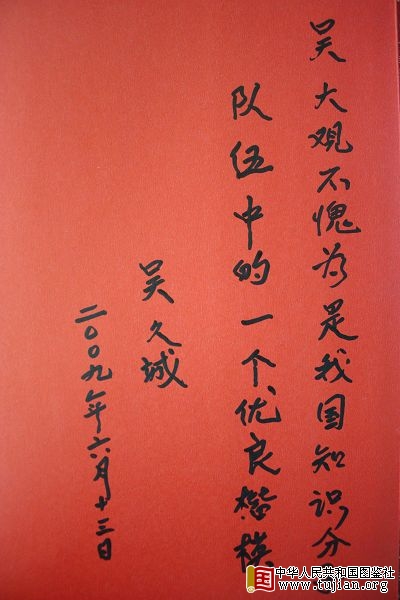 吴大观不愧为是我国知识分
队伍中的一个优良楷模
吴久城
二〇〇九年六月十三日
中华人民共和国图鉴社
www.tujian.org